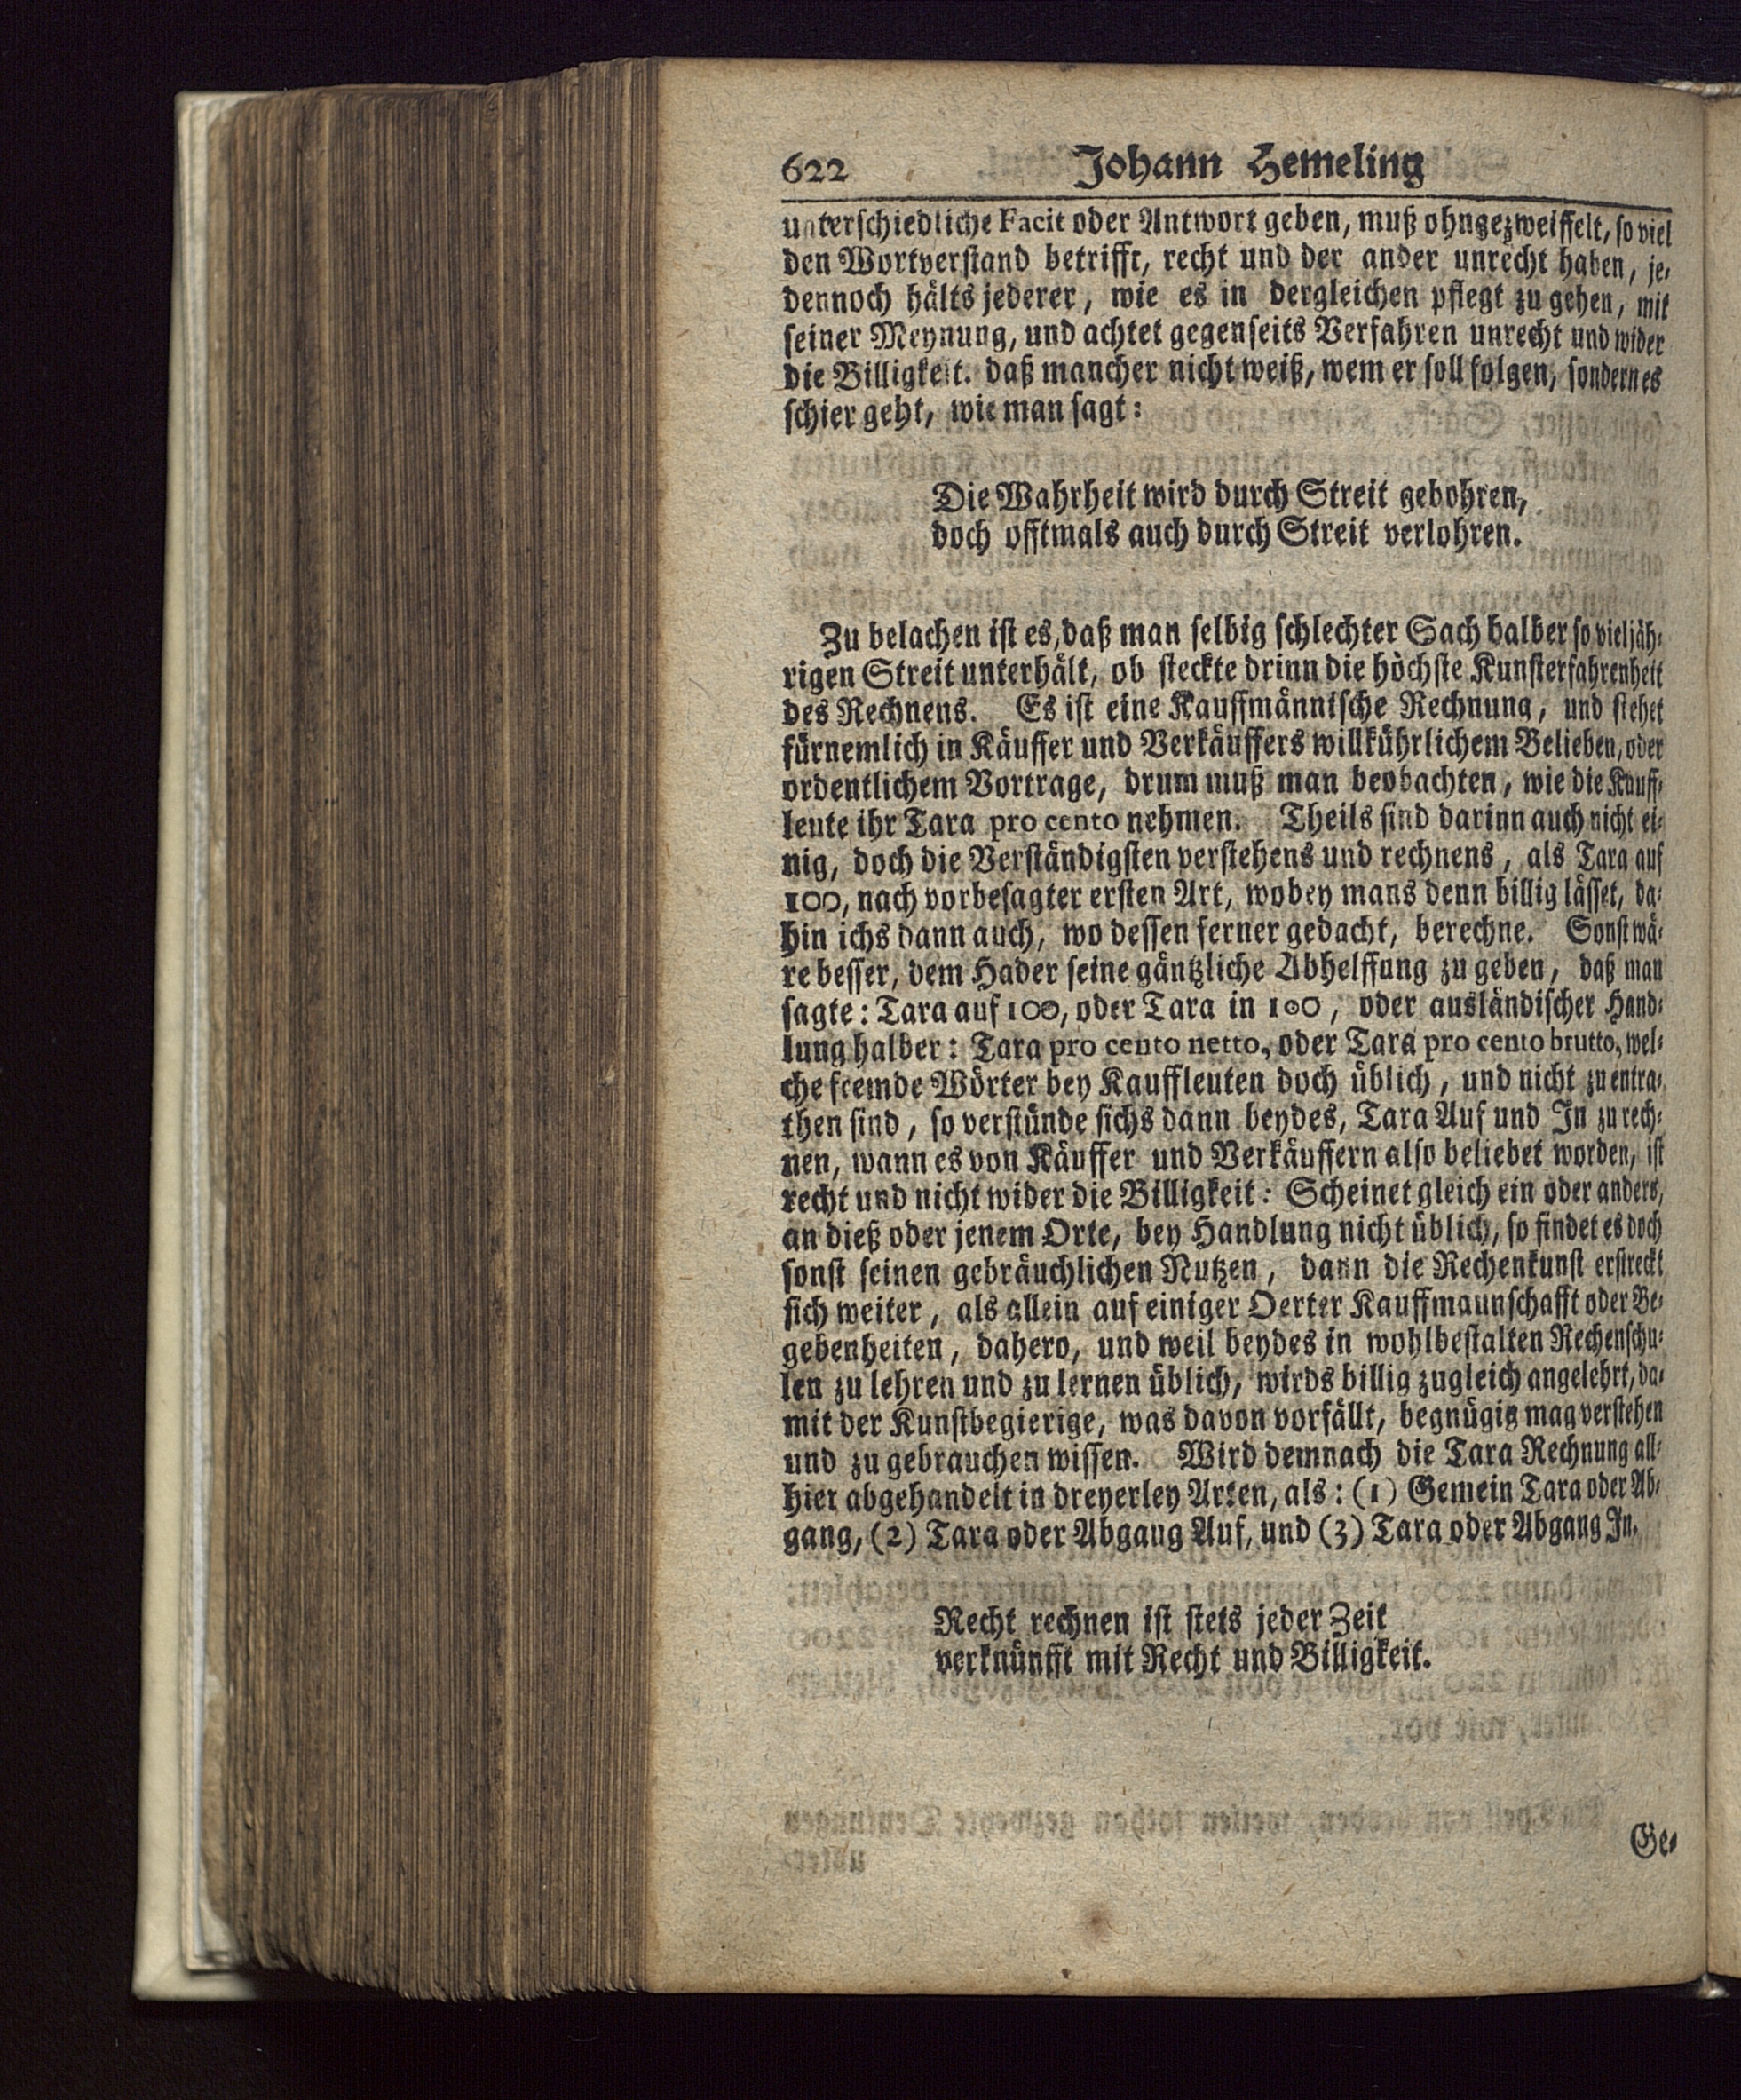 622 Johann Hemeling
unterschiedliche Facit oder Antwort geben, muß ohngezweiffelt, so viel
den Wortverstand betrifft, recht und der ander unrecht haben, je-
dennoch hälts jederer, wie es in dergleichen pflegt zu gehen, mit
seiner Meynung, und achtet gegenseits Verfahren unrecht und wider
die Billigkeit. daß mancher nicht weiß, wem er soll folgen, sondern es
schier geht, wie man sagt:
Die Wahrheit wird durch Streit gebohren,
doch offtmals auch durch Streit verlohren.
Zu belachen ist es, daß man selbig schlechter Sach halber so vieljäh-
rigen Streit unterhält, ob steckte drinn die höchste Kunsterfahrenheit
des Rechnens. Es ist eine Kauffmännische Rechnung, und stehet
fürnemlich in Käuffer und Verkäuffers willkührlichem Belieben, oder
ordentlichem Vortrage, drum muß man beobachten, wie die Kauff-
leute ihr Tara pro cento nehmen. Theils sind darinn auch nicht ei-
nig, doch die Verständigsten verstehens und rechnens, als Tara auf
100, nach vorbesagter ersten Art, wobey mans denn billig lässet, da-
hin ichs dann auch, wo dessen ferner gedacht, berechne. Sonst wä-
re besser, dem Hader seine gäntzliche Abhelffung zu geben, daß man
sagte: Tara auf 100, oder Tara in 100, oder ausländischer Hand-
lung halber: Tara pro cento netto, oder Tara pro cento brutto, wel-
che fremde Wörter bey Kauffleuten doch üblich, und nicht zu entra-
then sind, so verstünde sichs dann beydes, Tara Auf und In zu rech-
nen, wann es von Käuffer und Verkäuffern also beliebet worden, ist
recht und nicht wider die Billigkeit: Scheinet gleich ein oder anders,
an dieß oder jenem Orte, bey Handlung nicht üblich, so findet es doch
sonst seinen gebräuchlichen Nutzen, dann die Rechenkunst erstreckt
sich weiter, als allein auf einiger Oerter Kauffmannschafft oder Be-
gebenheiten, dahero, und weil beydes in wohlbestalten Rechenschu-
len zu lehren und zu lernen üblich, wirds billig zugleich angelehrt, da-
mit der Kunstbegierige, was davon vorfällt, begnügig mag verstehen
und zu gebrauchen wissen. Wird demnach die Tara Rechnung all-
hier abgehandelt in dreyerley Arten, als: (1) Gemein Tara oder Ab-
gang, (2) Tara oder Abgang Auf, und (3) Tara oder Abgang In.
Recht rechnen ist stets jeder Zeit
verknünfft mit Recht und Billigkeit.
Ge-